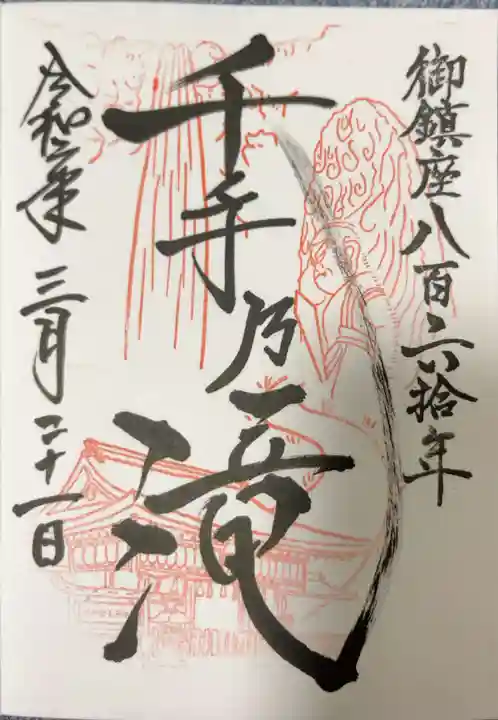 御鎮座八百六拾年
千手乃滝
令和六年 三月二十一日